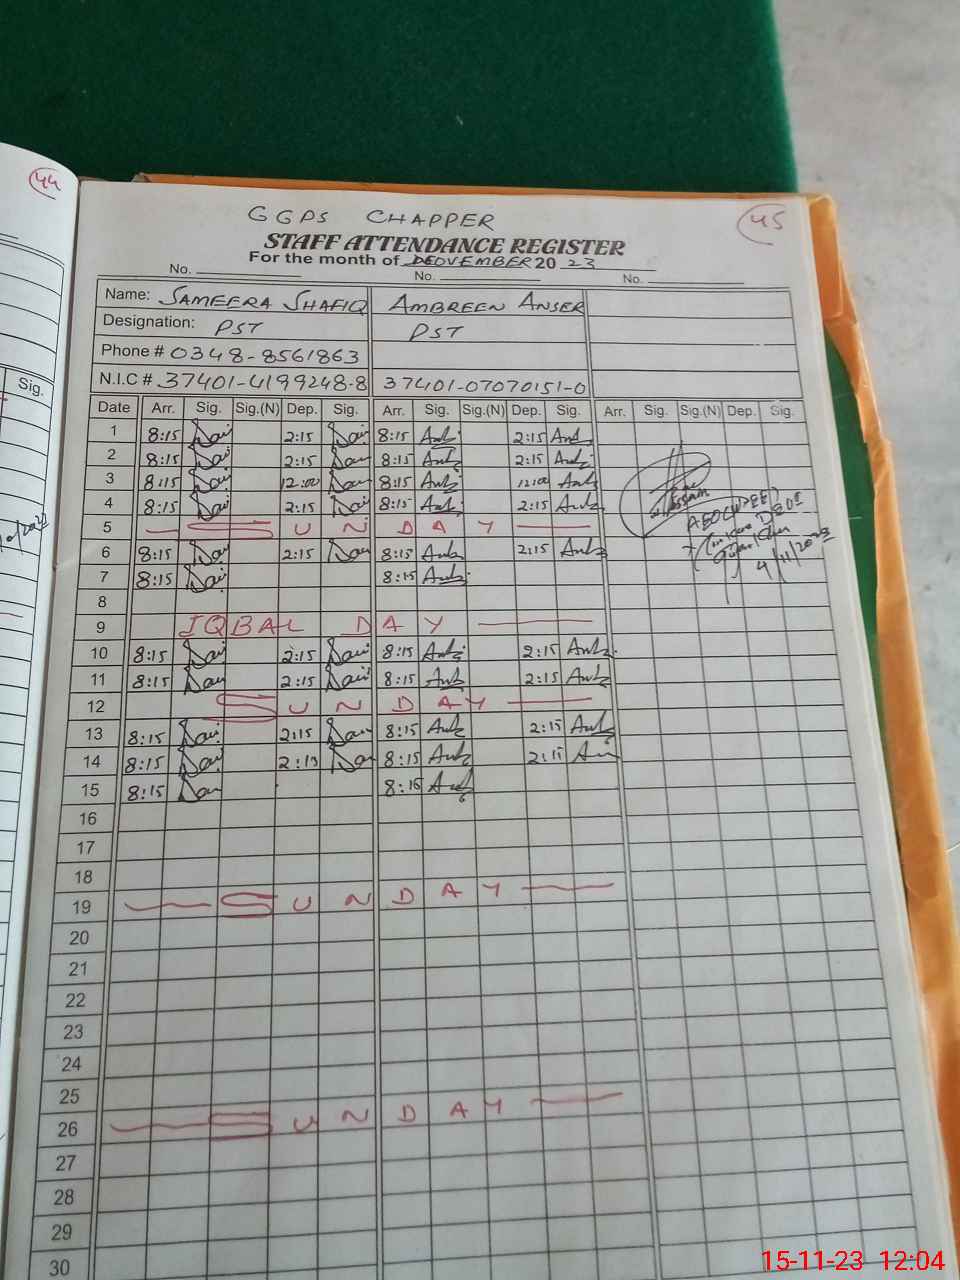 44
45
GGPS CHAPPER
STAFF ATTENDANCE REGISTER
For the month of DEOVEMBER 20 23
No. No. No.
Name: SAMEERA SHAFIQ AMBREEN ANSER
Designation: PST PST
Phone # 0348-8561863
N.I.C # 37401-4199248-8 37401-07070151-0
Sig.
Date Arr. Sig. Sig.(N) Dep. Sig. Arr. Sig. Sig.(N) Dep. Sig. Arr. Sig. Sig.(N) Dep. Sig.
1 8:15 2:15 8:15 2:15
2 8:15 2:15 8:15 2:15
3 8:15 12:00 8:15 12:00
4 8:15 2:15 8:15 2:15
5 SUNDAY
6 8:15 2:15 8:15 2:15
7 8:15 8:15
8
9 IQBAL DAY
10 8:15 2:15 8:15 2:15
11 8:15 2:15 8:15 2:15
12 SUNDAY
13 8:15 2:15 8:15 2:15
14 8:15 2:15 8:15 2:15
15 8:15 8:15
16
17
18
19 SUNDAY
20
21
22
23
24
25
26 SUNDAY
27
28
29
30
4/11/2023
15-11-23 12:04